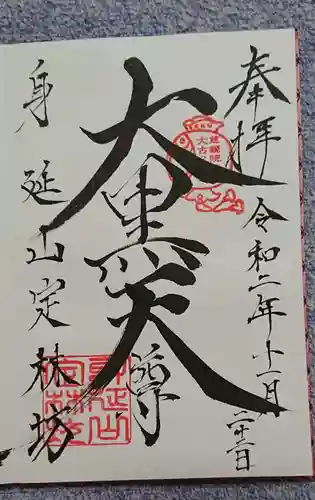 奉拝
令和二年十一月二十二日
大黒天
尊
身延山定林坊